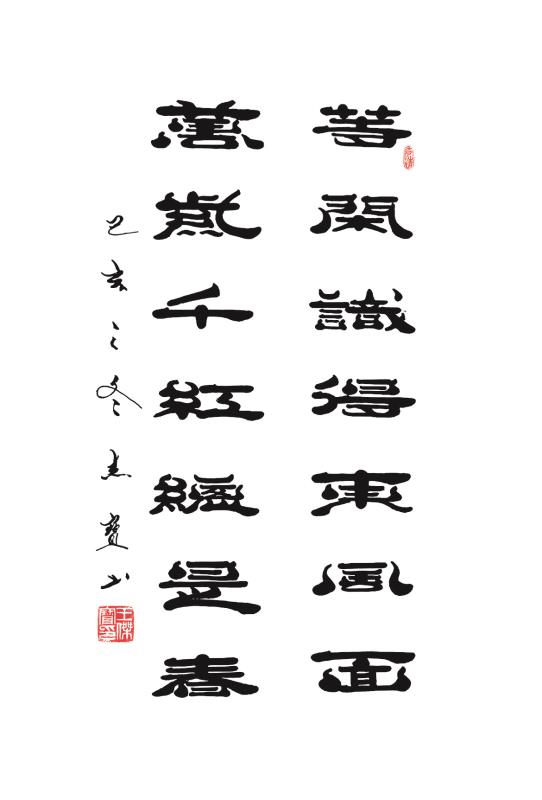 等閑識得東風面
萬紫千紅總是春
己亥之冬杰寶
王傑寶印